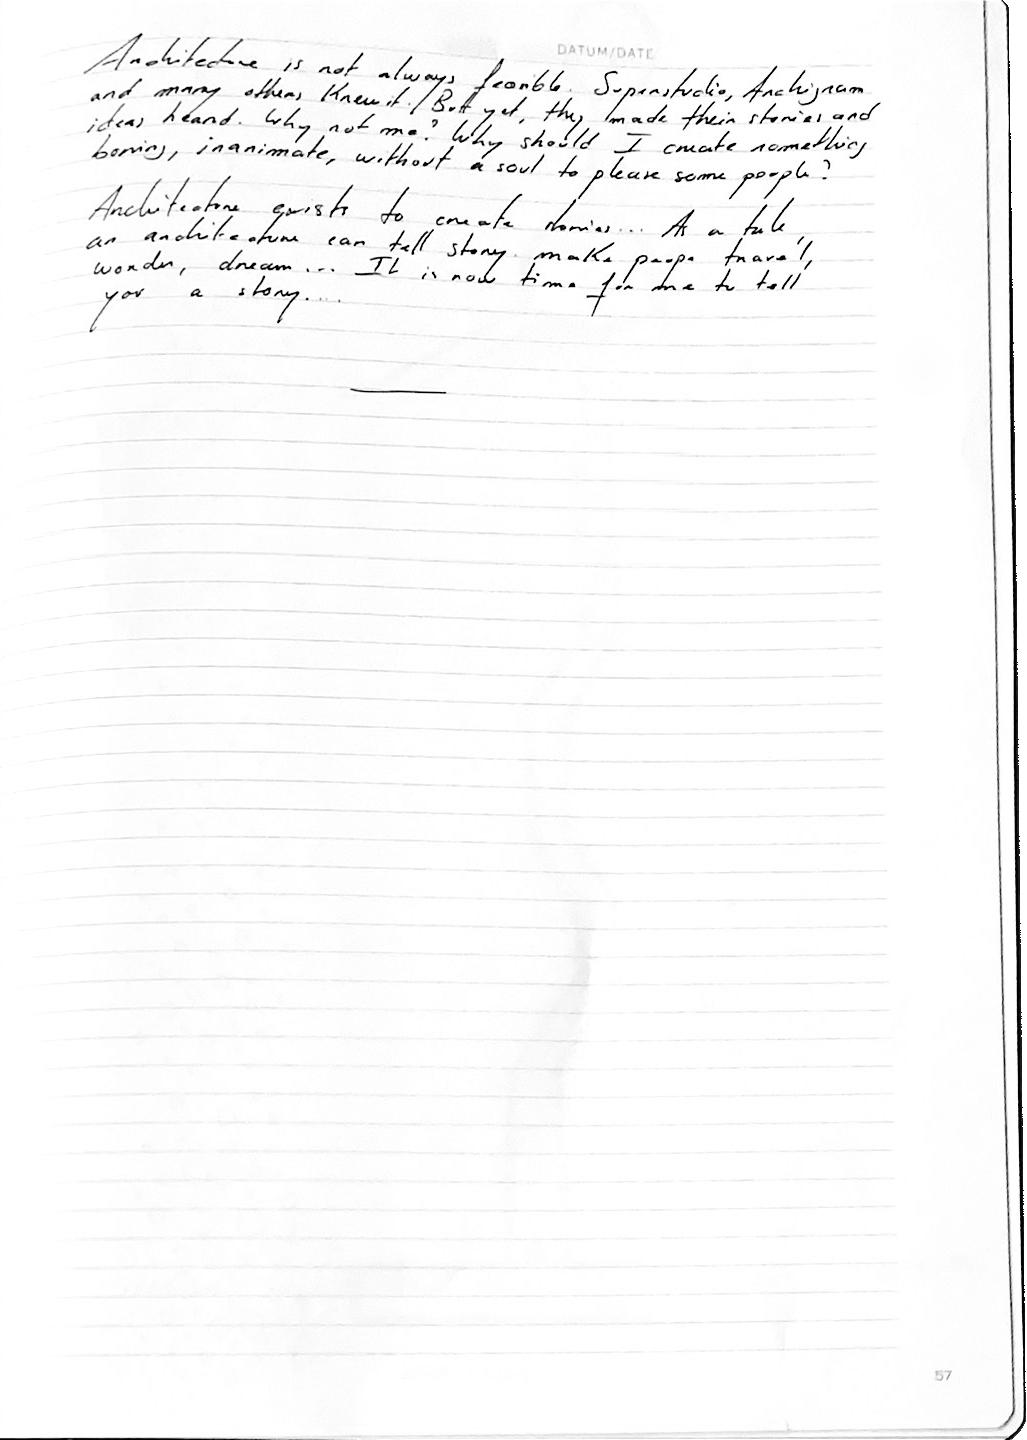 DATUM/DATE
Architecture is not always feasible. Superstudio, Archigram
and many others knew it. But yet, they made their stories and
ideas heard. Why not me? Why should I create something
boring, inanimate, without a soul to please some people?
Architecture exists to create stories... As a tale,
an architecture can tell story. make peope travel,
wonder, dream... It is now time for me to tell
you a story....
57